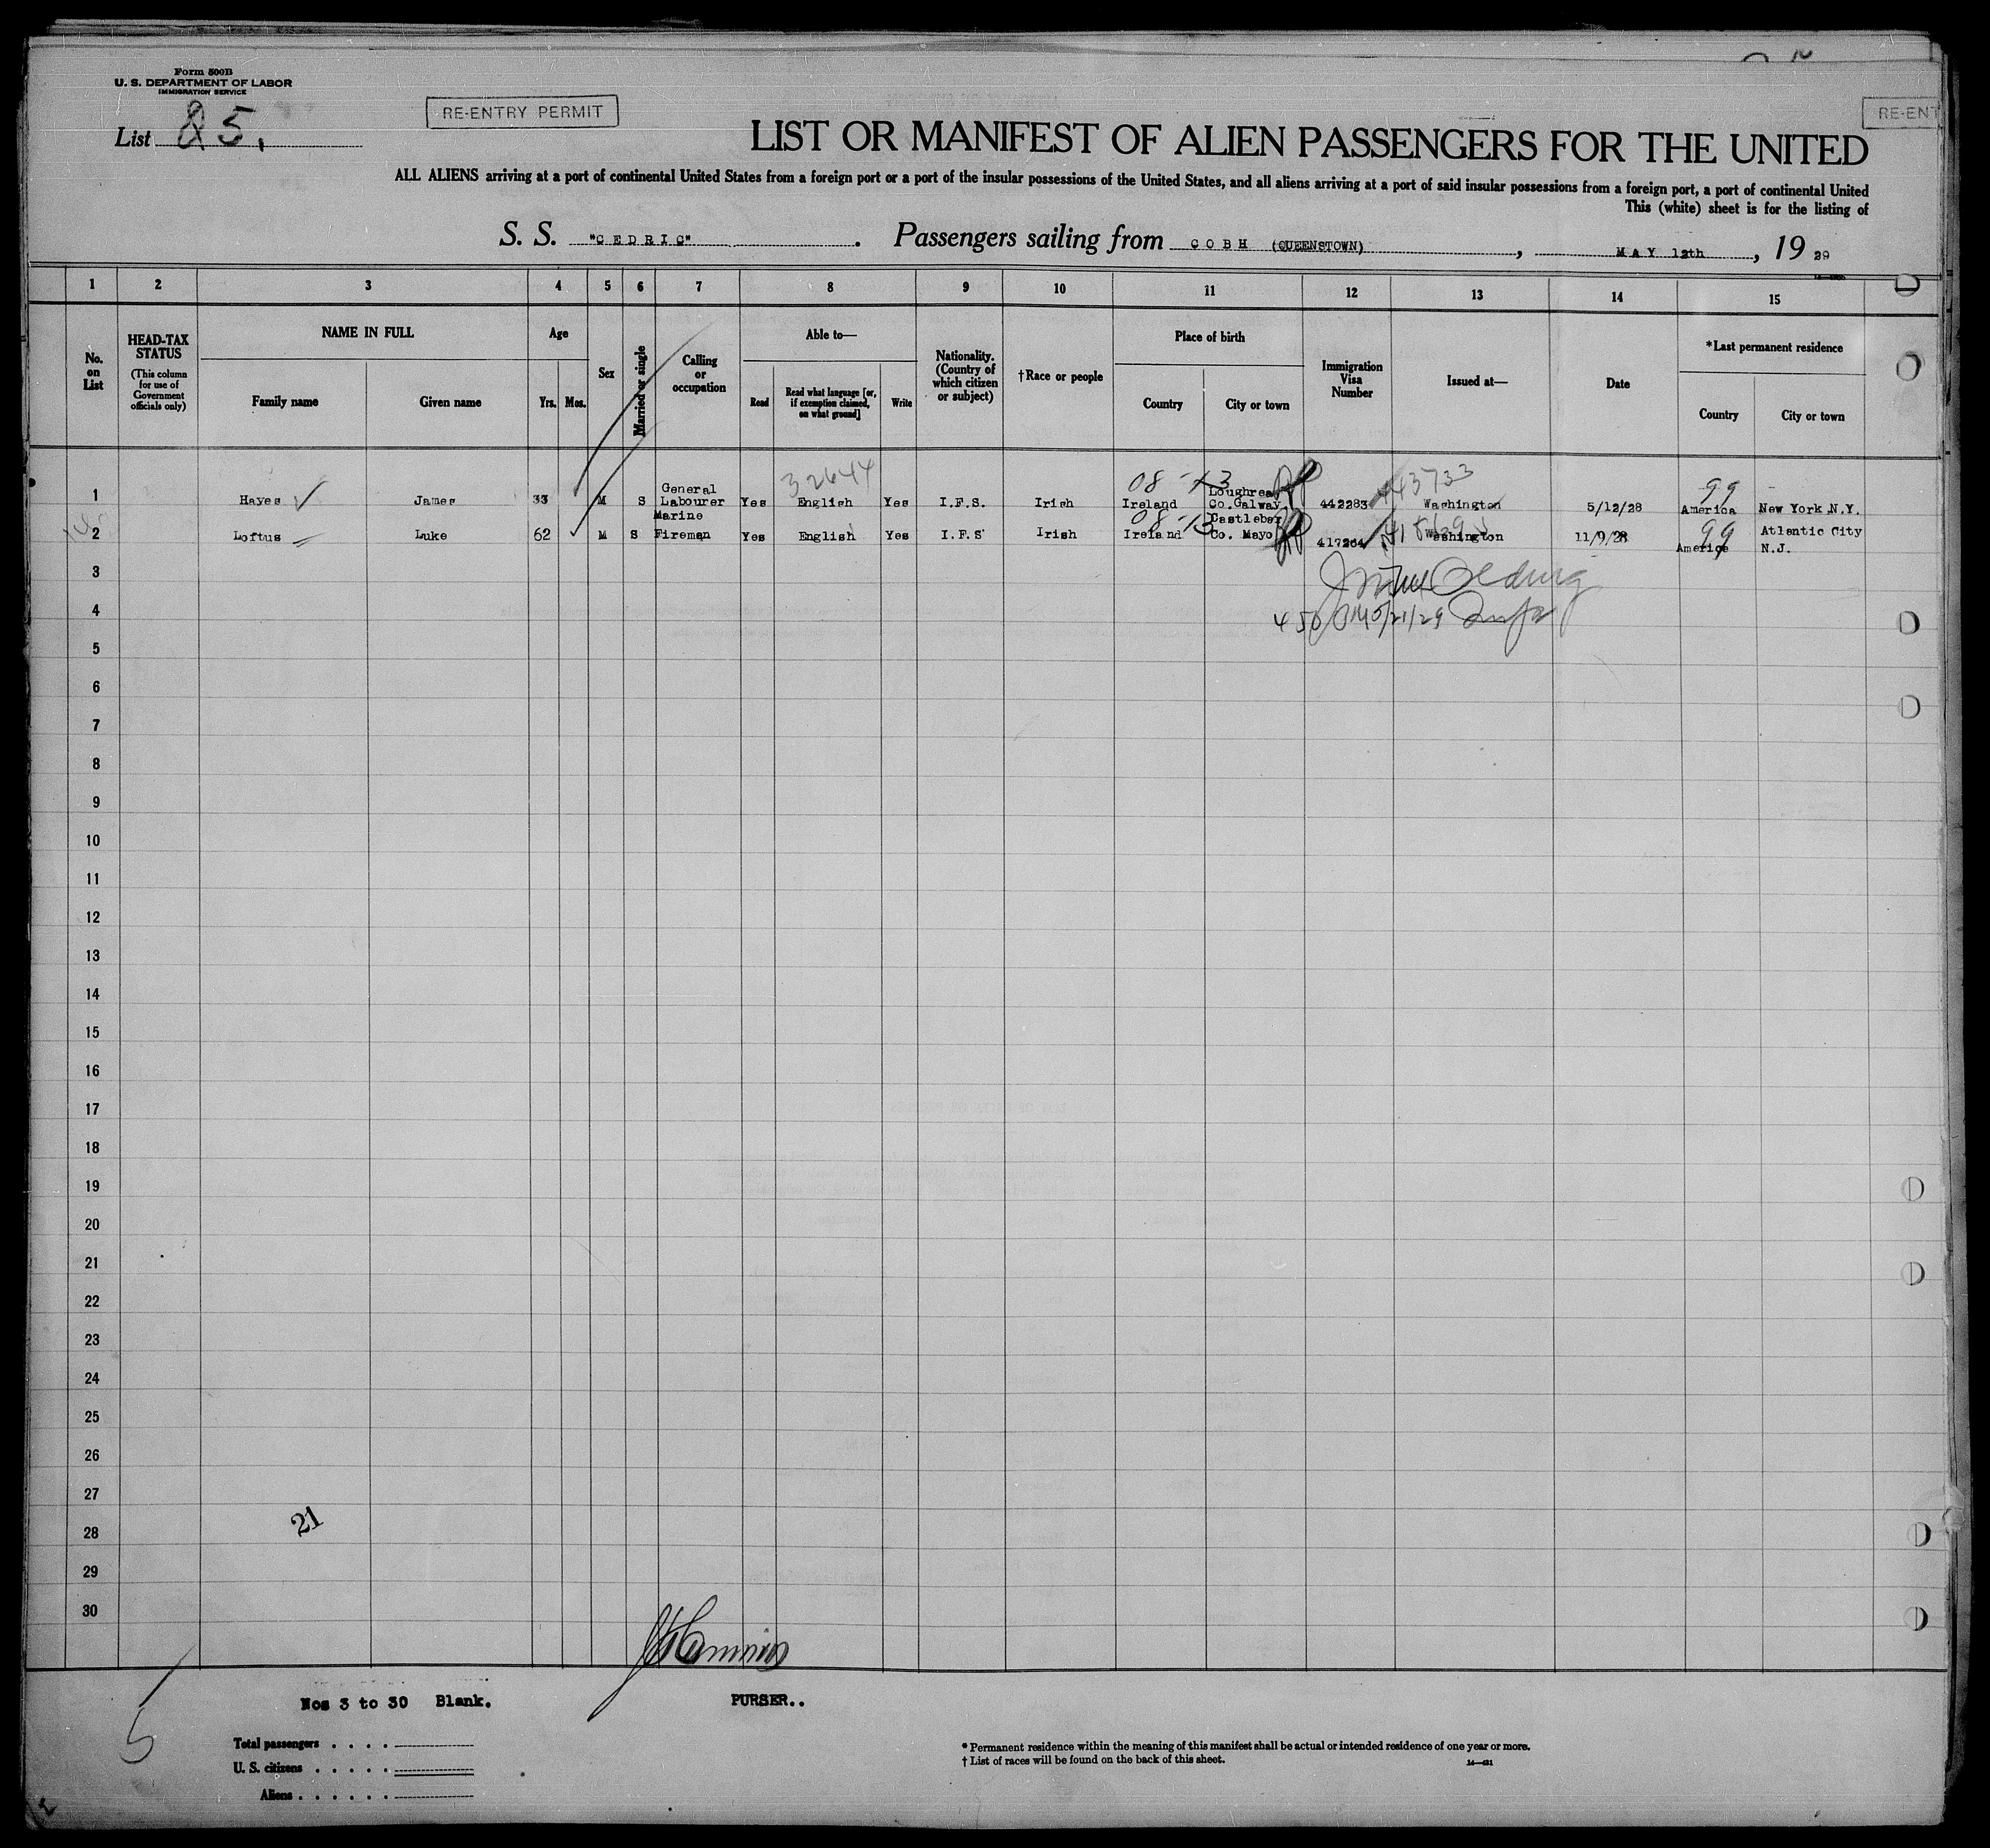 Form 500B
U. S. DEPARTMENT OF LABOR
IMMIGRATION SERVICE
List 25.
RE-ENTRY PERMIT
RE-ENT
LIST OR MANIFEST OF ALIEN PASSENGERS FOR THE UNITED
ALL ALIENS arriving at a port of continental United States from a foreign port or a port of the insular possessions of the United States, and all aliens arriving at a port of said insular possessions from a foreign port, a port of continental United
This (white) sheet is for the listing of
S. S. "CEDRIC". Passengers sailing from COBH (QUEENSTOWN), MAY 12th, 19 29
1 2 3 4 5 6 7 8 9 10 11 12 13 14 15
No. on List
HEAD-TAX STATUS
(This column for use of Government officials only)
NAME IN FULL
Family name Given name
Age
Yrs. Mos.
Sex
Married or single
Calling or occupation
Able to—
Read
Read what language [or, if exemption claimed, on what ground]
Write
Nationality. (Country of which citizen or subject)
†Race or people
Place of birth
Country City or town
Immigration Visa Number
Issued at—
Date
*Last permanent residence
Country City or town
32644 08-13 43733 99
1 Hayes James 33 M S General Labourer Yes English Yes I.F.S. Irish Ireland Loughrea Co.Galway 442283 Washington 5/12/28 America New York N.Y.
08-13 99
2 Loftus Luke 62 M S Marine Fireman Yes English Yes I.F.S Irish Ireland Castlebar Co. Mayo 417264 Washington 11/9/28 America Atlantic City N.J.
3
4 450 PM 5/21/29
5
6
7
8
9
10
11
12
13
14
15
16
17
18
19
20
21
22
23
24
25
26
27
21
28
29
30
Nos 3 to 30 Blank. PURSER..
5
Total passengers . . . .
U. S. citizens . . . . .
Aliens . . . . . .
* Permanent residence within the meaning of this manifest shall be actual or intended residence of one year or more.
† List of races will be found on the back of this sheet.